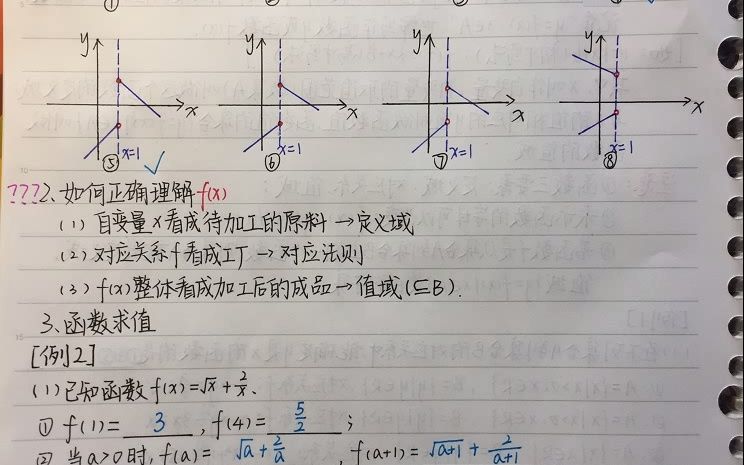 ① ② ③ ④
y y y y
x x x x
x=1 x=1 x=1 x=1
⑤ ✓ ⑥ ⑦ ⑧
???2、如何正确理解f(x)
(1) 自变量x看成待加工的原料→定义域
(2) 对应关系f看成工厂→对应法则
(3) f(x)整体看成加工后的成品→值域(⊆B).
3、函数求值
[例2]
(1)已知函数f(x)=√x+2/x.
① f(1)= 3 , f(4)= 5/2 ;
② 当a>0时, f(a)= √a+2/a , f(a+1)= √(a+1)+2/(a+1)